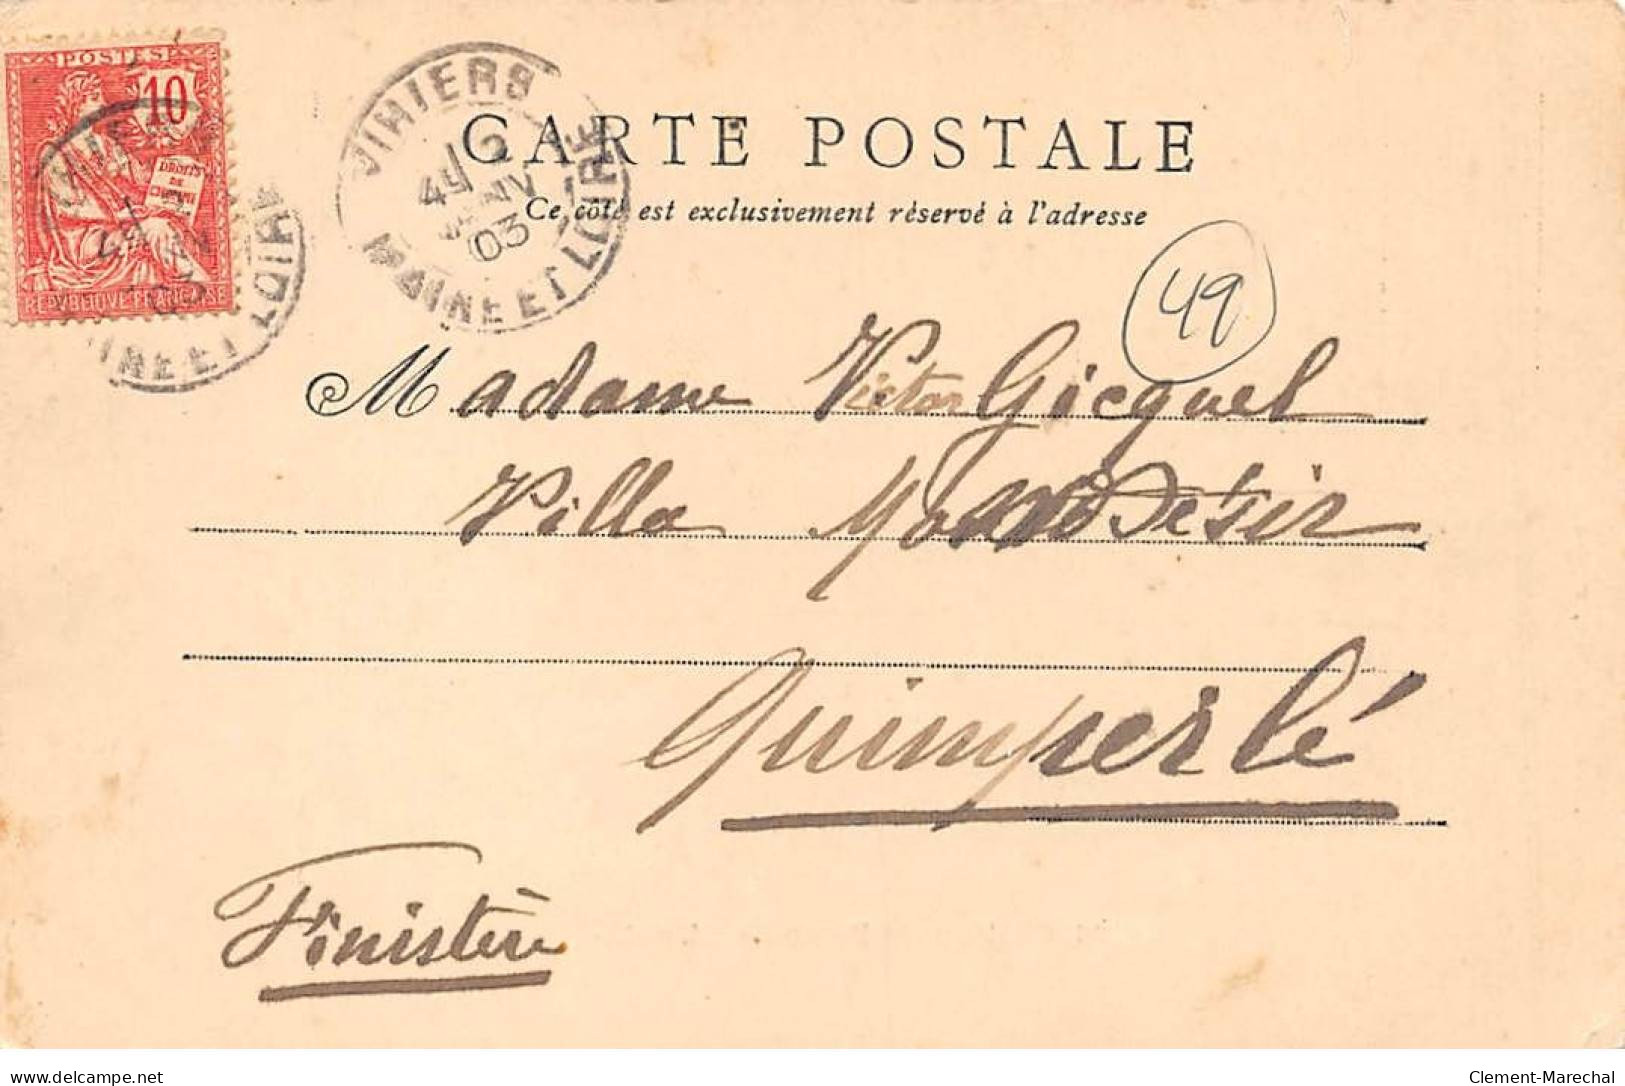 POSTES
10
DROITS
DE
L'HOMME
REPUBLIQUE FRANÇAISE
VIHIERS
4E 2
JANV
03
MAINE ET LOIRE
CARTE POSTALE
Ce côté est exclusivement réservé à l'adresse
49
Madame Victor Gicquel
Villa Mon Désir
Quimperlé
Finistère
www.delcampe.net
Clement-Marechal